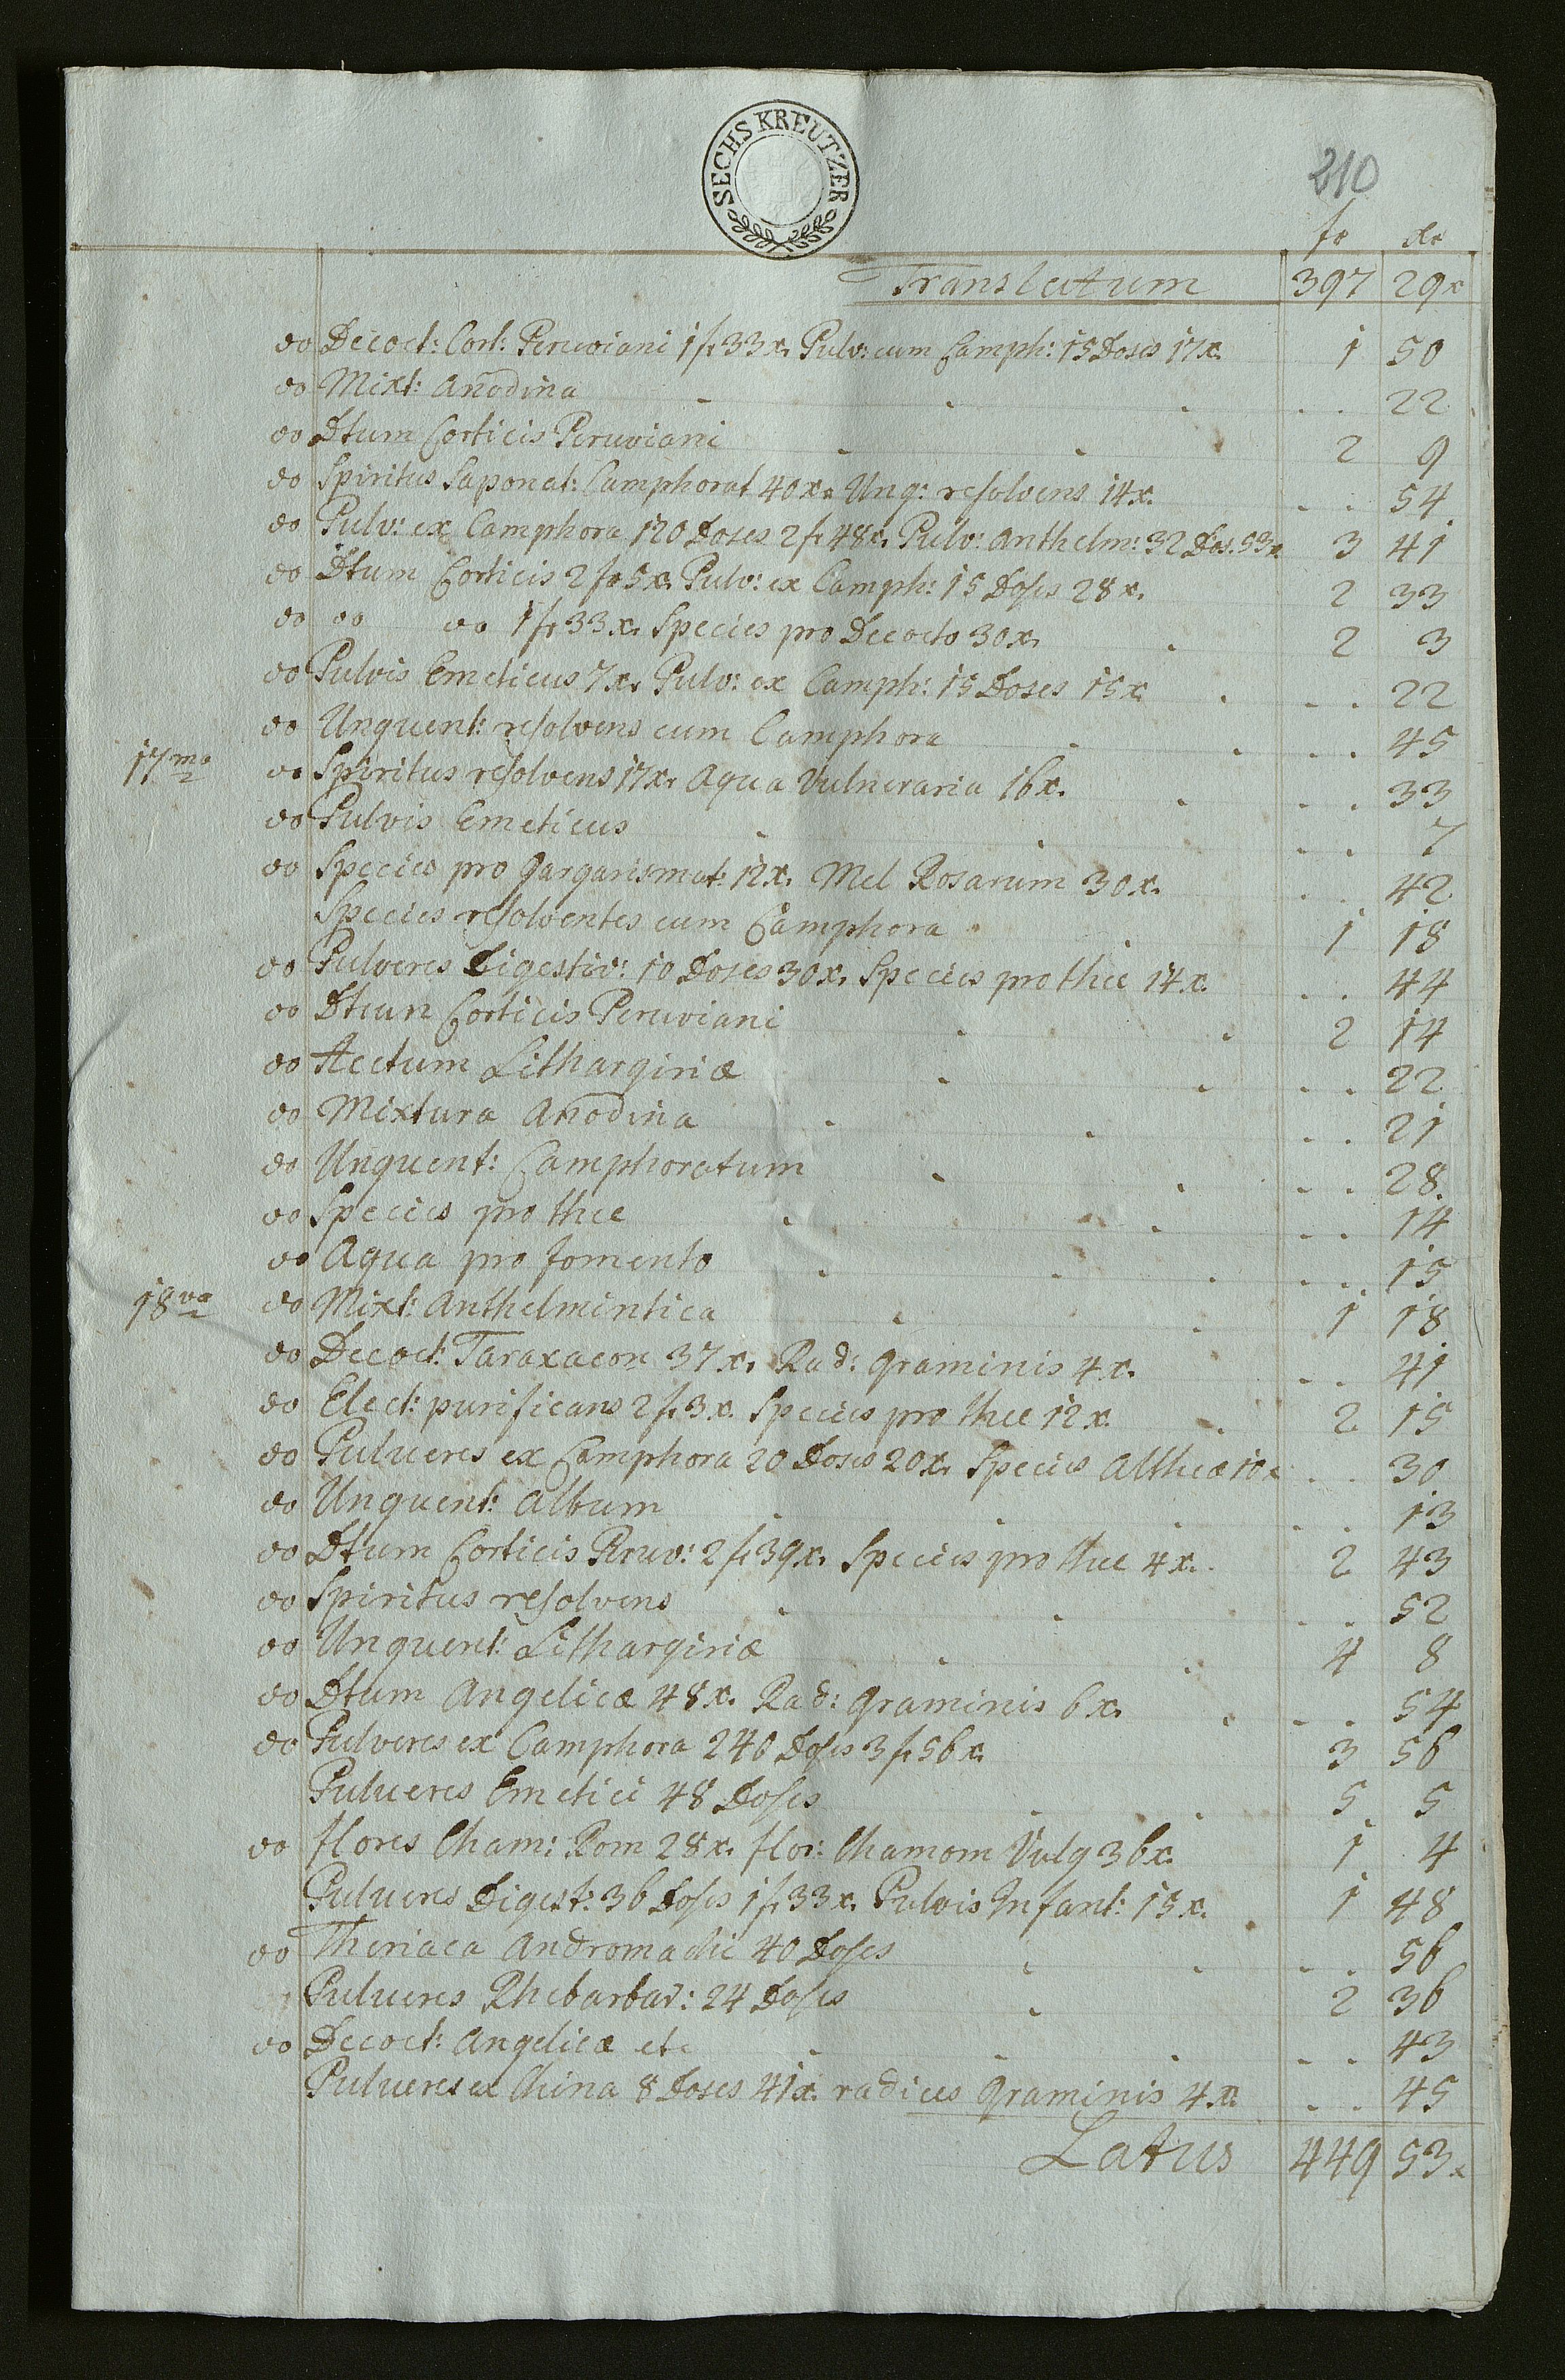 SECHS KREUTZER
210
fr xr
Translatum 397 29x
do Decoct: Cort: Peruviani 1 fr 33 x. Pulv: cum Camph: 15 Doses 17x. 1 50
do Mixt: Anodina . . 22
do Dtum Corticis Peruviani 2 9
do Spiritus Saponat: Camphorat 40 xr Ung: resolvens 14x. . . 54
do Pulv: ex Camphora 120 Doses 2 fr 48x. Pulv: Anthelm: 32 Dos. 53x. 3 41
do Dtum Corticis 2 fr 5x. Pulv: ex Camph: 15 Doses 28 x. 2 33
do do do 1 fr 33 x. Species pro Decocto 30x. 2 3
do Pulvis Emeticus 7x. Pulv: ex Camph: 15 Doses 15x . . 22
do Unguent: resolvens cum Camphora . . 45
17ma do Spiritus resolvens 17xr Aqua Vulneraria 16x. . . 33
do Pulvis Emeticus . . 7
do Species pro Gargarismat: 12x. Mel Rosarum 30x. . . 42
Species resolventes cum Camphora 1 18
do Pulveres Digestiv: 10 Doses 30x. Species pro thee 14x. . . 44
do Dtum Corticis Peruviani 2 14
do Acetum Lithargiriæ . . 22
do Mixtura Anodina . . 21
do Unguent: Camphoratum . . 28.
do Species pro thee . . 14
do Aqua pro fomento . . 15
18va do Mixt: Anthelmintica 1 18
do Decoct: Taraxacon 37 x. Rad: Graminis 4x. . . 41
do Elect: purificans 2 fr 3x. Species pro thee 12x. 2 15
do Pulueres ex Camphora 20 Doses 20x. Species Altheæ 10x . . 30
do Unguent: Album . . 13
do Dtum Corticis Peruv: 2 fr 39x. Species pro thee 4x. 2 43
do Spiritus resolvens . . 52
do Unguent: Lithargiriæ 4 8
do Dtum Angelicæ 48x. Rad: Graminis 6x. . . 54
do Pulveres ex Camphora 240 Doses 3 fr 56x. 3 56
Pulueres Emetici 48 Doses 5 5
do flores Cham: Rom 28x. flor: Chamom Vulg 36x. 1 4
Pulueres Digest: 36 Doses 1 fr 33x. Pulvis Infant: 15x. 1 48
do Theriaca Andromachi 40 Doses . . 56
Pulueres Rhebarbar: 24 Doses 2 36
do Decoct: Angelicæ etc . . 43
Pulueres ex China 8 Doses 41x. radices Graminis 4x. . . 45
Latus 449 53x